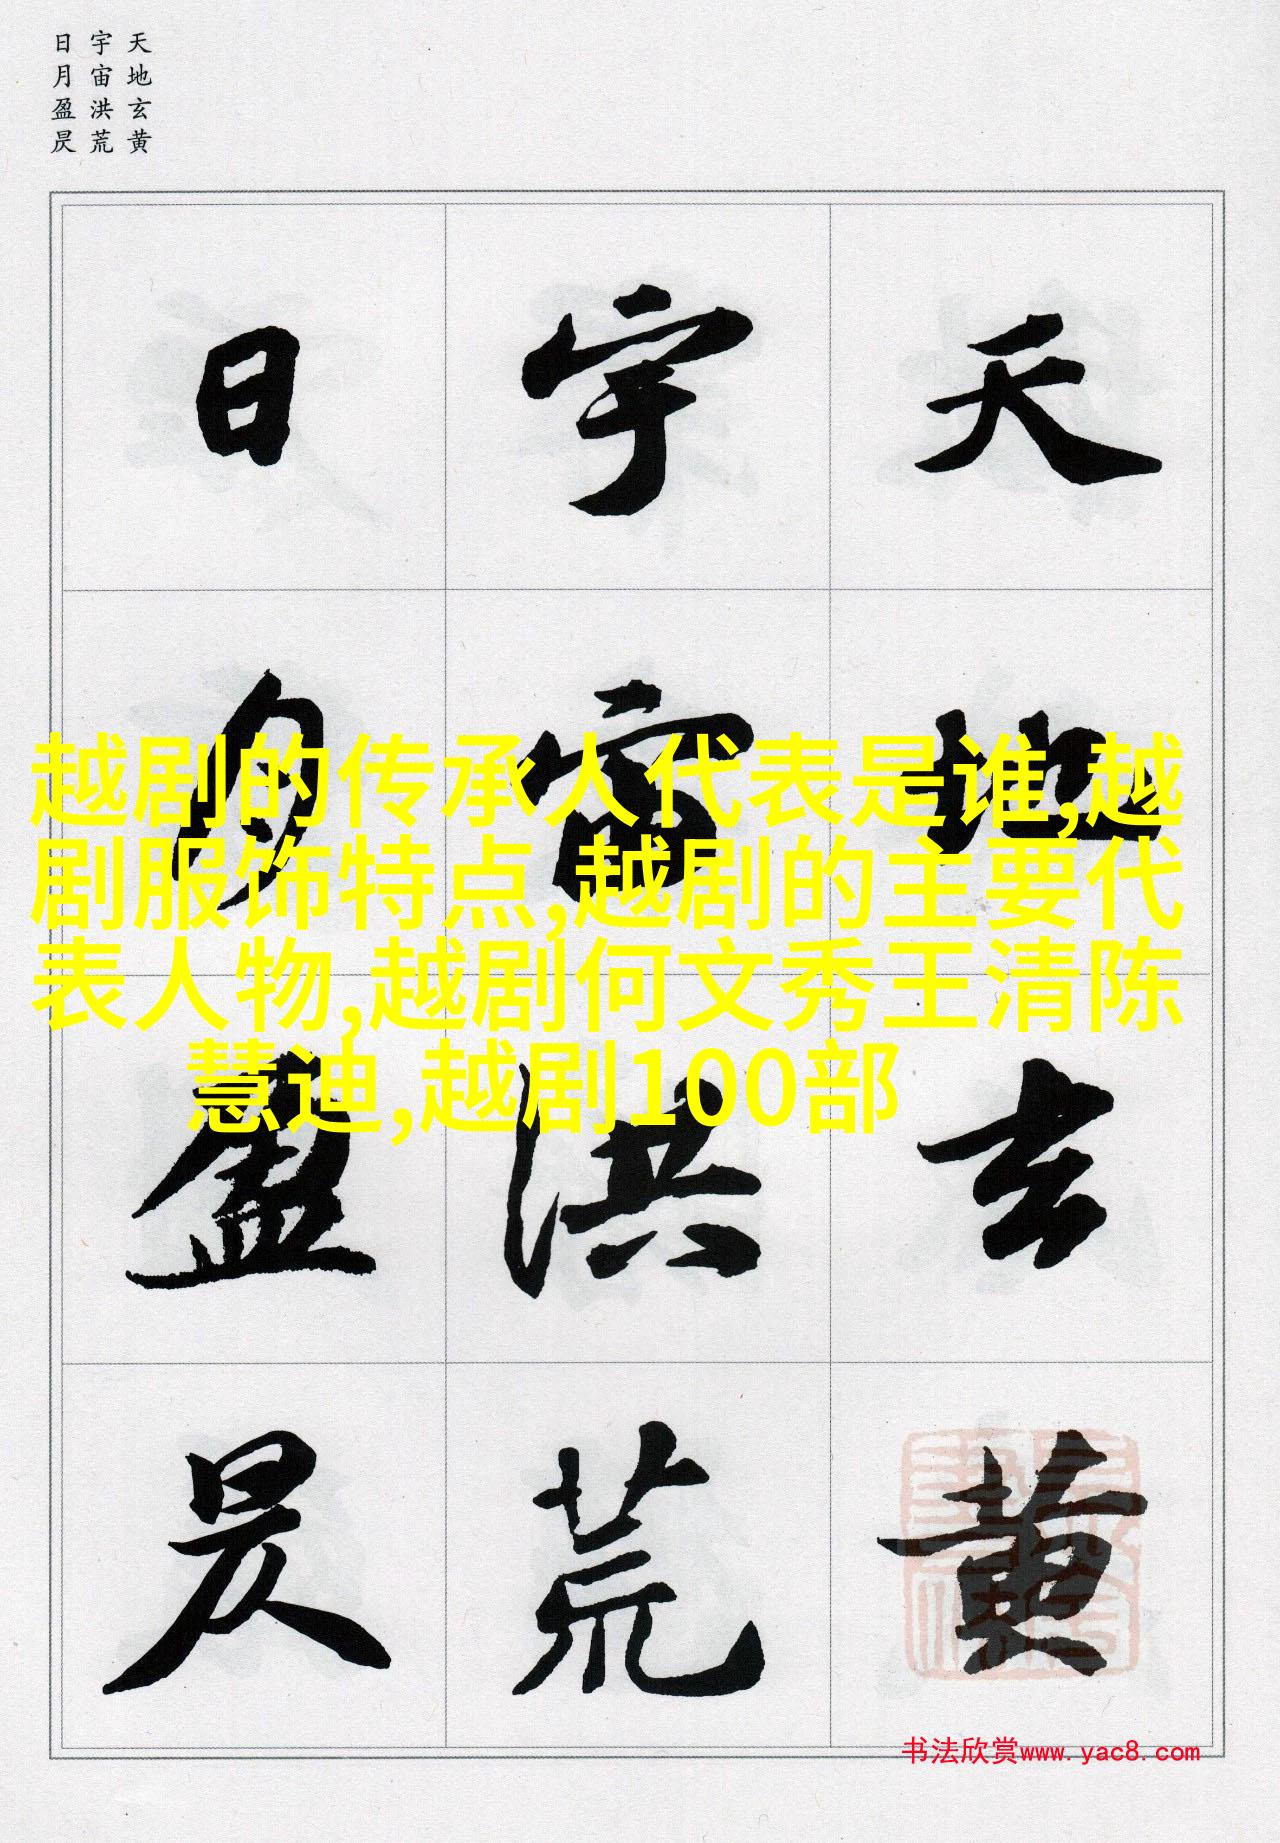 天地玄黄
宇宙洪荒
日月盈昃
天地玄黄
宇宙洪荒
日月盈昃
越剧的传承人代表是谁,越
剧服饰特点,越剧的主要代
表人物,越剧何文秀王清陈
慧迪,越剧100部
书法欣赏www.yac8.com